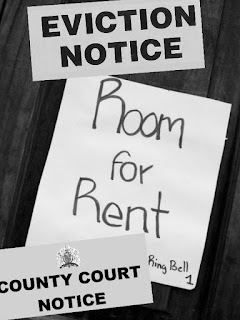 EVICTION
NOTICE
Room
for
Rent
Ring Bell
1
COUNTY COURT
NOTICE